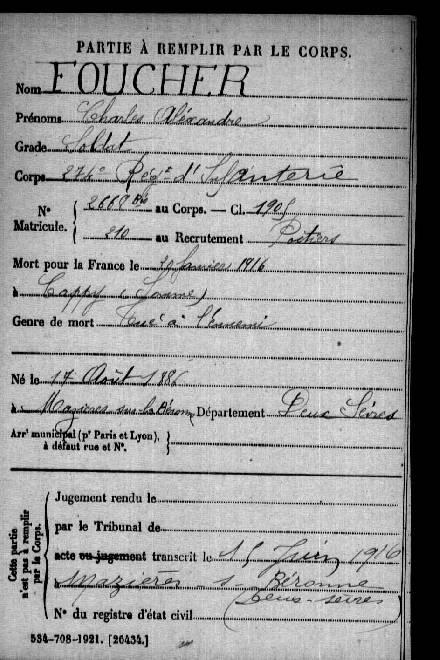 PARTIE À REMPLIR PAR LE CORPS.
Nom FOUCHER
Prénoms Charles Alexandre
Grade Soldat
Corps 276e Régt d'Infanterie
N° Matricule. { au Corps. — Cl. 1905
210 au Recrutement Poitiers
Mort pour la France le Janvier 1916
à Cappy (Somme)
Genre de mort Tué à l'Ennemi
Né le 17 Août 1886
à Mazières sur la Béronne Département Deux Sèvres
Arrt municipal (pr Paris et Lyon), à défaut rue et N°. }
Cette partie n'est pas à remplir par le Corps.
Jugement rendu le
par le Tribunal de
acte ou jugement transcrit le 15 Juin 1916
à Mazières s- Béronne
(Deux-Sèvres)
N° du registre d'état civil
534-708-1921. [26434.]